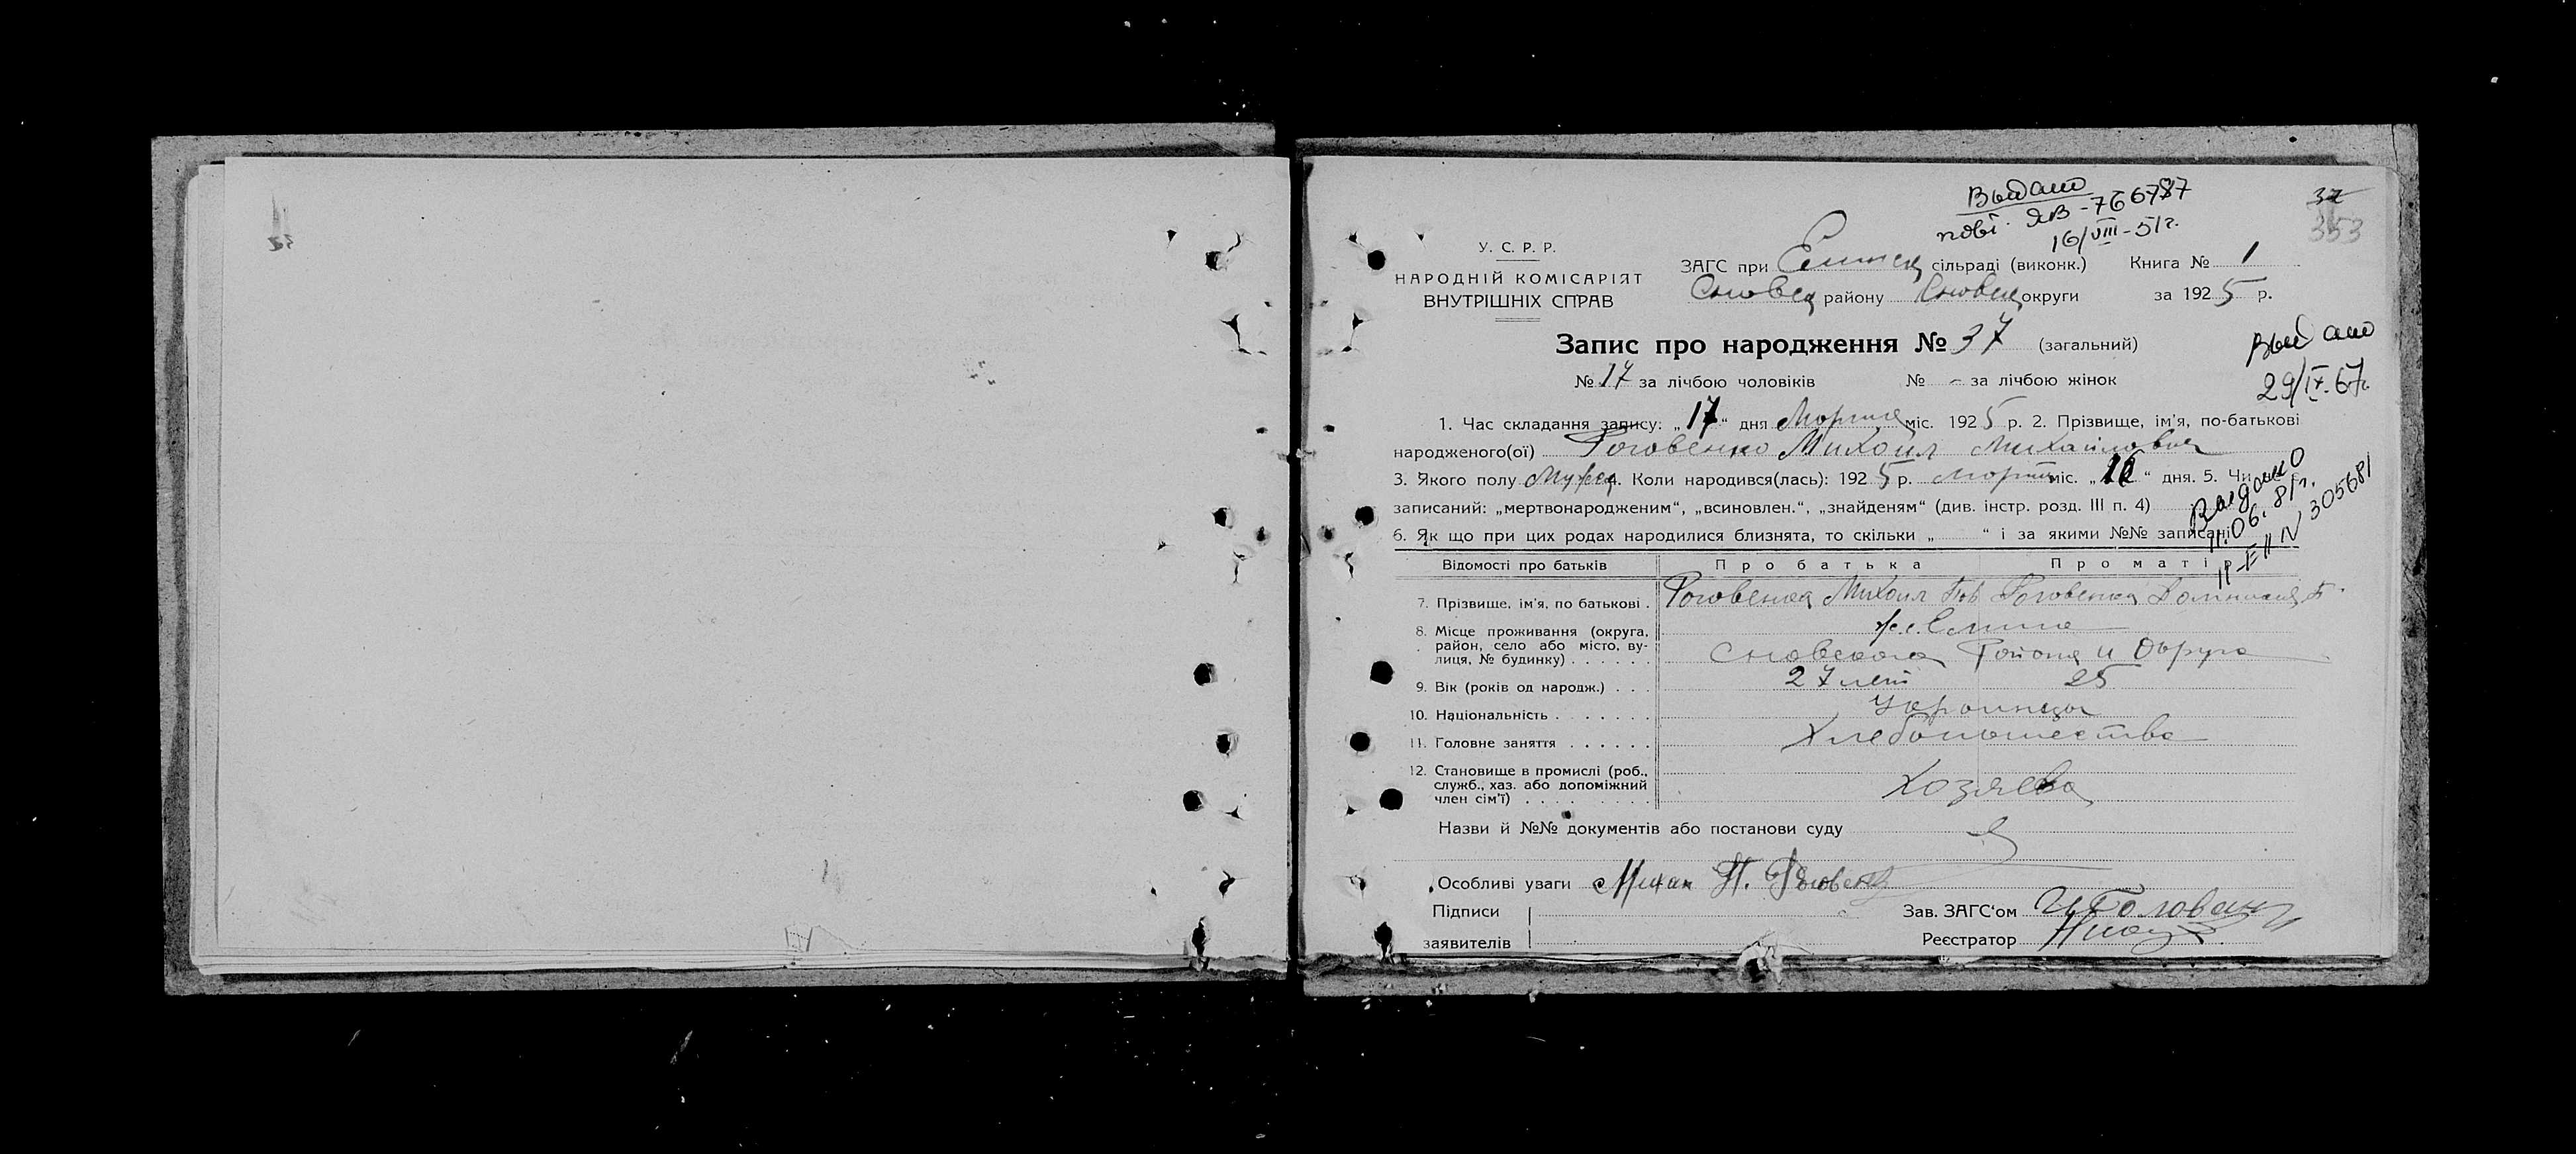 Выдано
повт. ЯВ-766787
16/VIII-51г.
37
353
У. С. Р. Р.
НАРОДНІЙ КОМІСАРІЯТ
ВНУТРІШНІХ СПРАВ
ЗАГС при Елинск сільраді (виконк.) Книга № 1
Сновск району Сновск округи за 1925 р.
Запис про народження № 37 (загальний)
№ 17 за лічбою чоловіків № - за лічбою жінок
Выдано
29/IX.67г.
1. Час складання запису: „17“ дня Марта міс. 1925 р. 2. Прізвище, ім'я, по-батькові
народженого(ої) Роговенко Михаил Михайлович
3. Якого полу Мужск 4. Коли народився(лась): 1925 р. март міс. „16“ дня. 5. Чи
записаний: „мертвонародженим“, „всиновлен.“, „знайденям“ (див. інстр. розд. III п. 4)
6. Як що при цих родах народилися близнята, то скільки „ “ і за якими №№ записані
Выдано
11.06.81г.
II-ЕЛ IV 305681
Відомості про батьків Про батька Про матір
7. Прізвище, ім'я, по батькові . Роговенко Михаил Роговенко Домникия
8. Місце проживання (округа, район, село або місто, вулиця, № будинку) . . . . . . с. Елине
Сновского Района и Округа
9. Вік (років од народж.) . . . 27 лет 25
10. Національність . . . . . . . Украинцы
11. Головне заняття . . . . . . Хлебопашество
12. Становище в промислі (роб., служб., хаз. або допоміжний член сім'ї) . . . . Хозяева
Назви й №№ документів або постанови суду
Особливі уваги Михаил П. Роговенко
Підписи
заявителів
Зав. ЗАГС'ом
Реєстратор